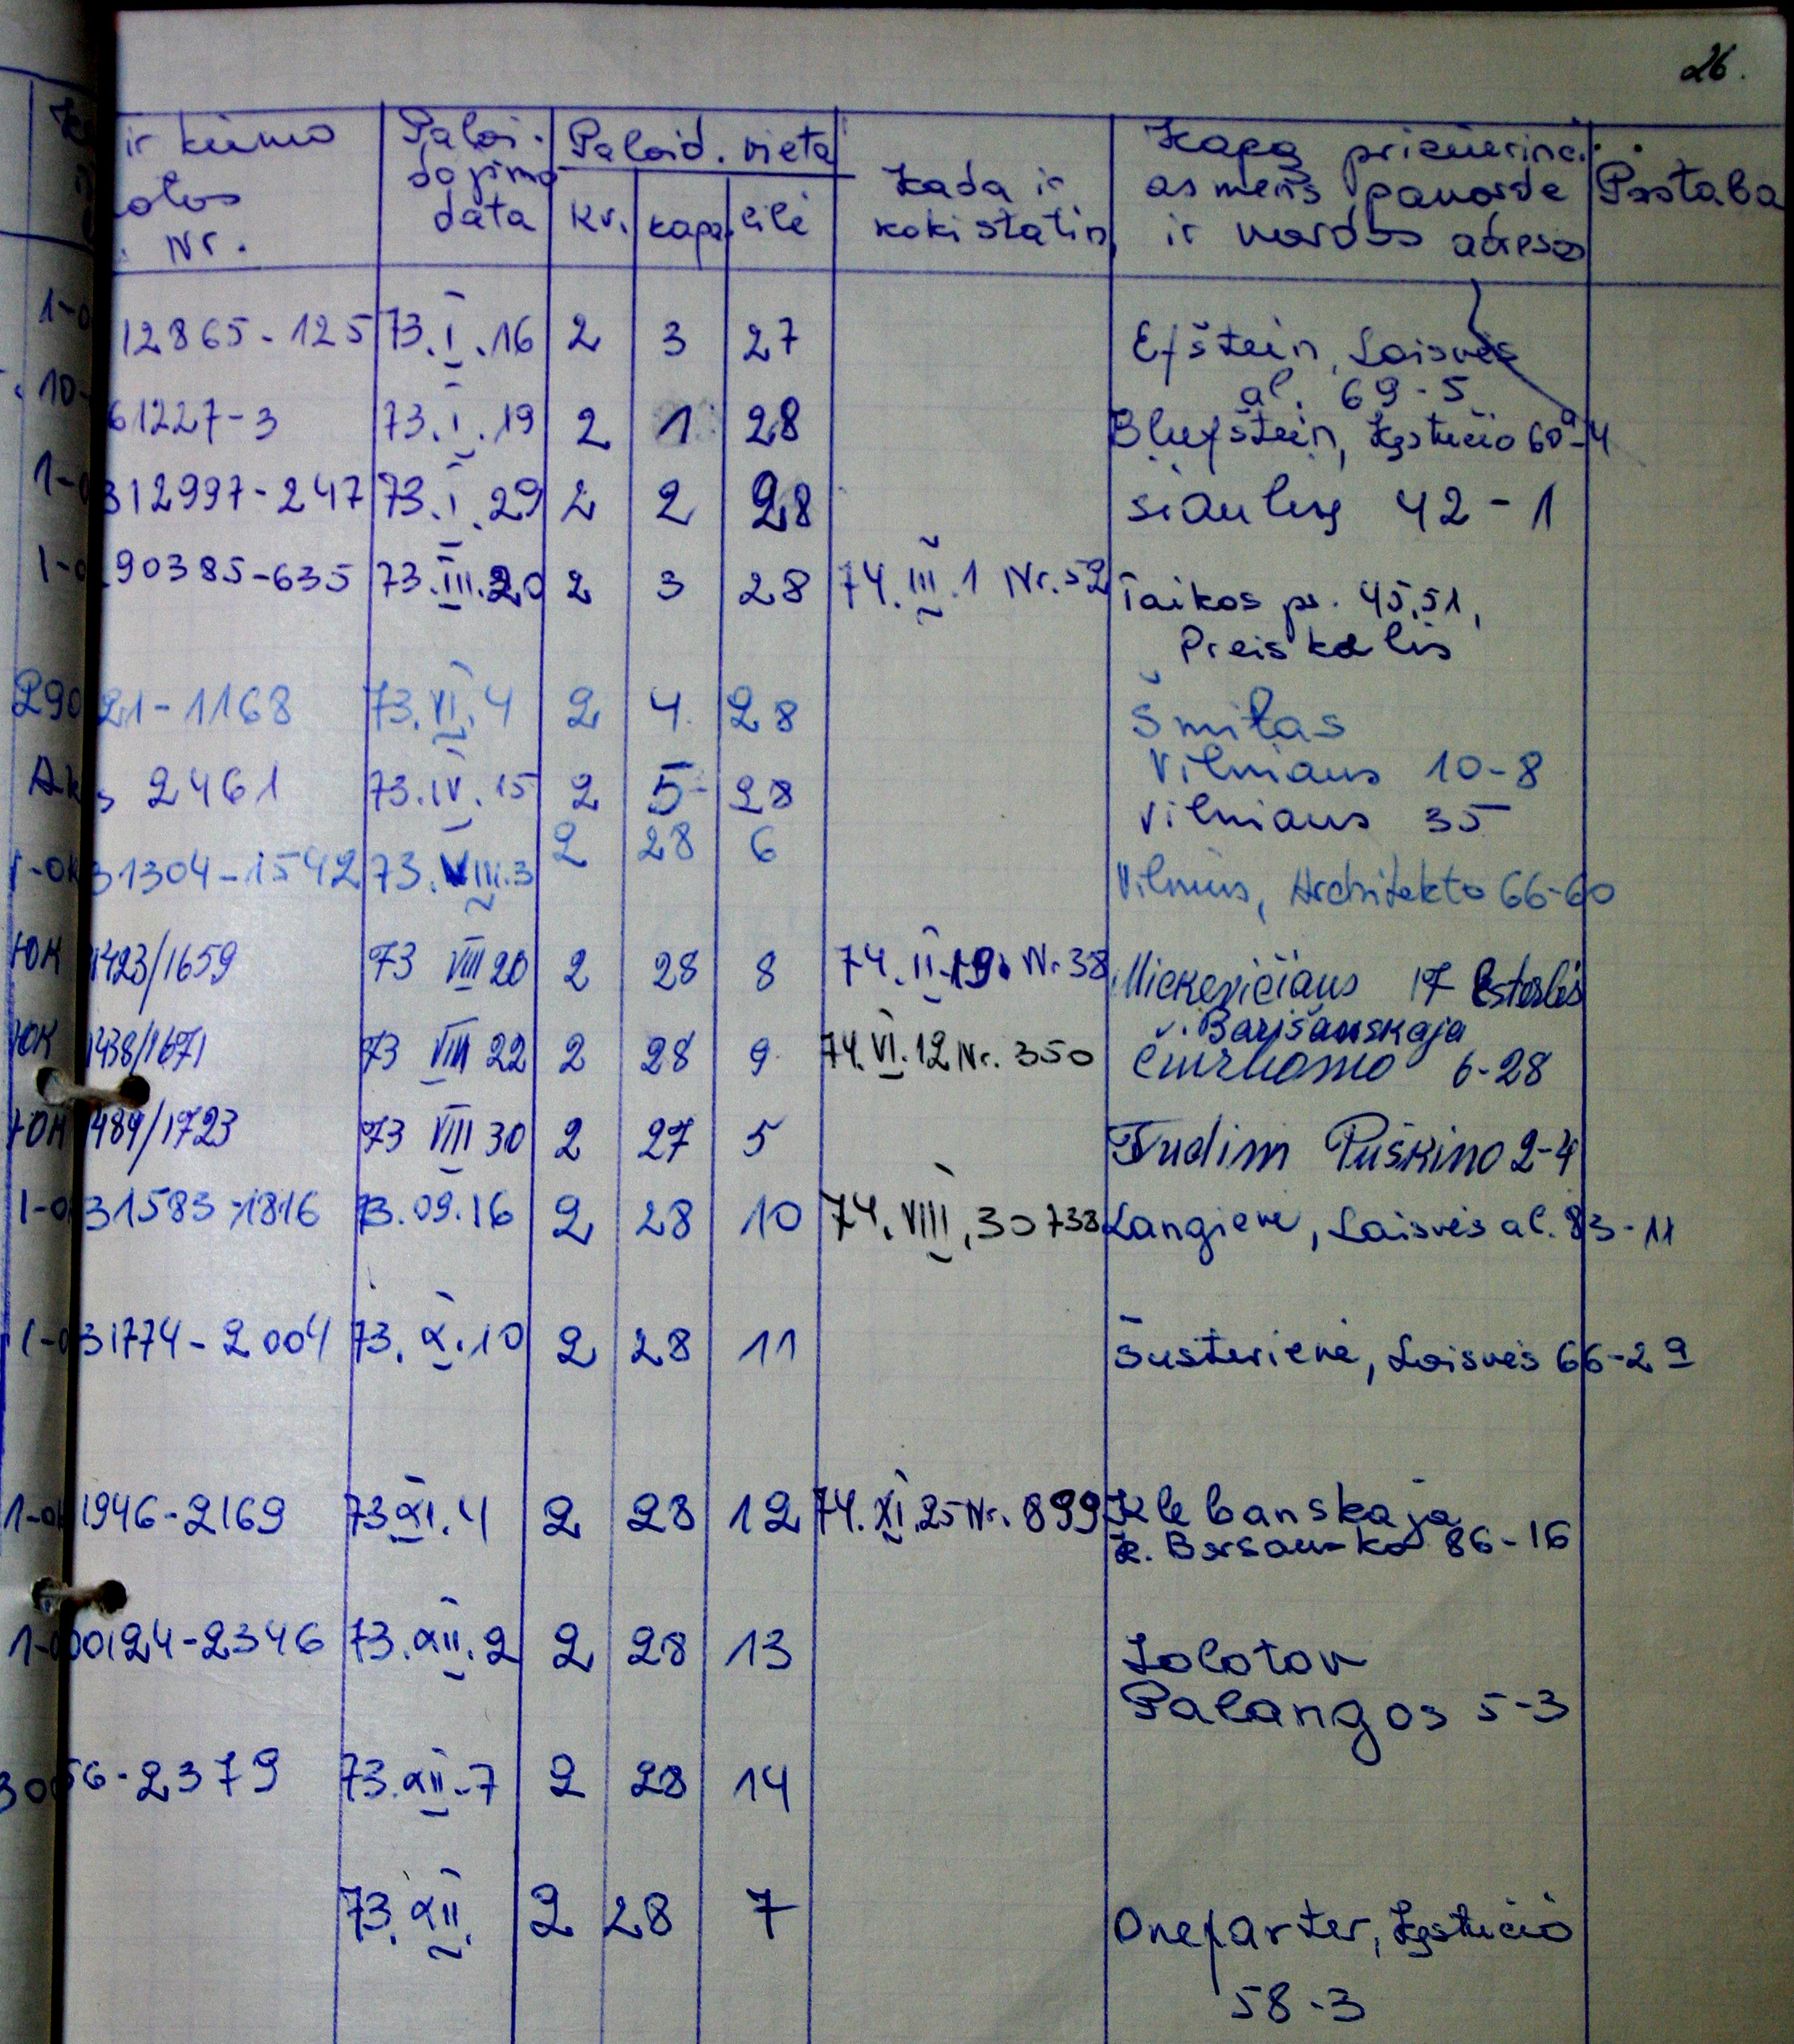 26.
ir kiimo
Nr.
Paloi-
dojimo
data
Paloid. vieta
kv. kapa eilė
Kada ir
koki statin.
Kapą prižiūrinč.
asmens pavardė
ir vardas adresas
Pastaba
1-0 12865-125 73.I.16 2 3 27 Efštein, Laisvės
al. 69-5
10- 61227-3 73.I.19 2 1 28 Blufštein, Kęstučio 60a-4
1-0 312997-247 73.I.29 2 2 28 Šiaulių 42-1
1-0 90385-635 73.III.20 2 3 28 74.III.1 Nr.52 Taikos pr. 45,51,
Preiskalis
290 21-1168 73.VI.4 2 4 28 Šmitas
Vilniaus 10-8
Ak 2461 73.IV.15 2 5 28 Vilniaus 35
2 28 6
1-0K 31304-1542 73.VIII.3 Vilnius, Architekto 66-60
ЮК 1423/1659 73 VIII 20 2 28 8 74.II.19. Nr.38 Mickevičiaus 17
Barišanskaja
ЮК 1438/1671 73 VIII 22 2 28 9 74.VI.12 Nr.350 6-28
ЮК 1489/1723 73 VIII 30 2 27 5 Judim Puškino 2-4
1-0 31583-1816 73.09.16 2 28 10 74.VIII.30 738 Langienė, Laisvės al. 83-11
1-0 31774-2004 73.X.10 2 28 11 Šusterienė, Laisvės 66-29
1-0k 1946-2169 73.XI.4 2 28 12 74.XI.25 Nr.899 Klebanskaja
K. Barsausko 86-16
1-0 00124-2346 73.XII.2 2 28 13 Zolotov
Palangos 5-3
30 56-2379 73.XII-7 2 28 14
73.XII. 2 28 7 Oneparter, Kęstučio
58-3